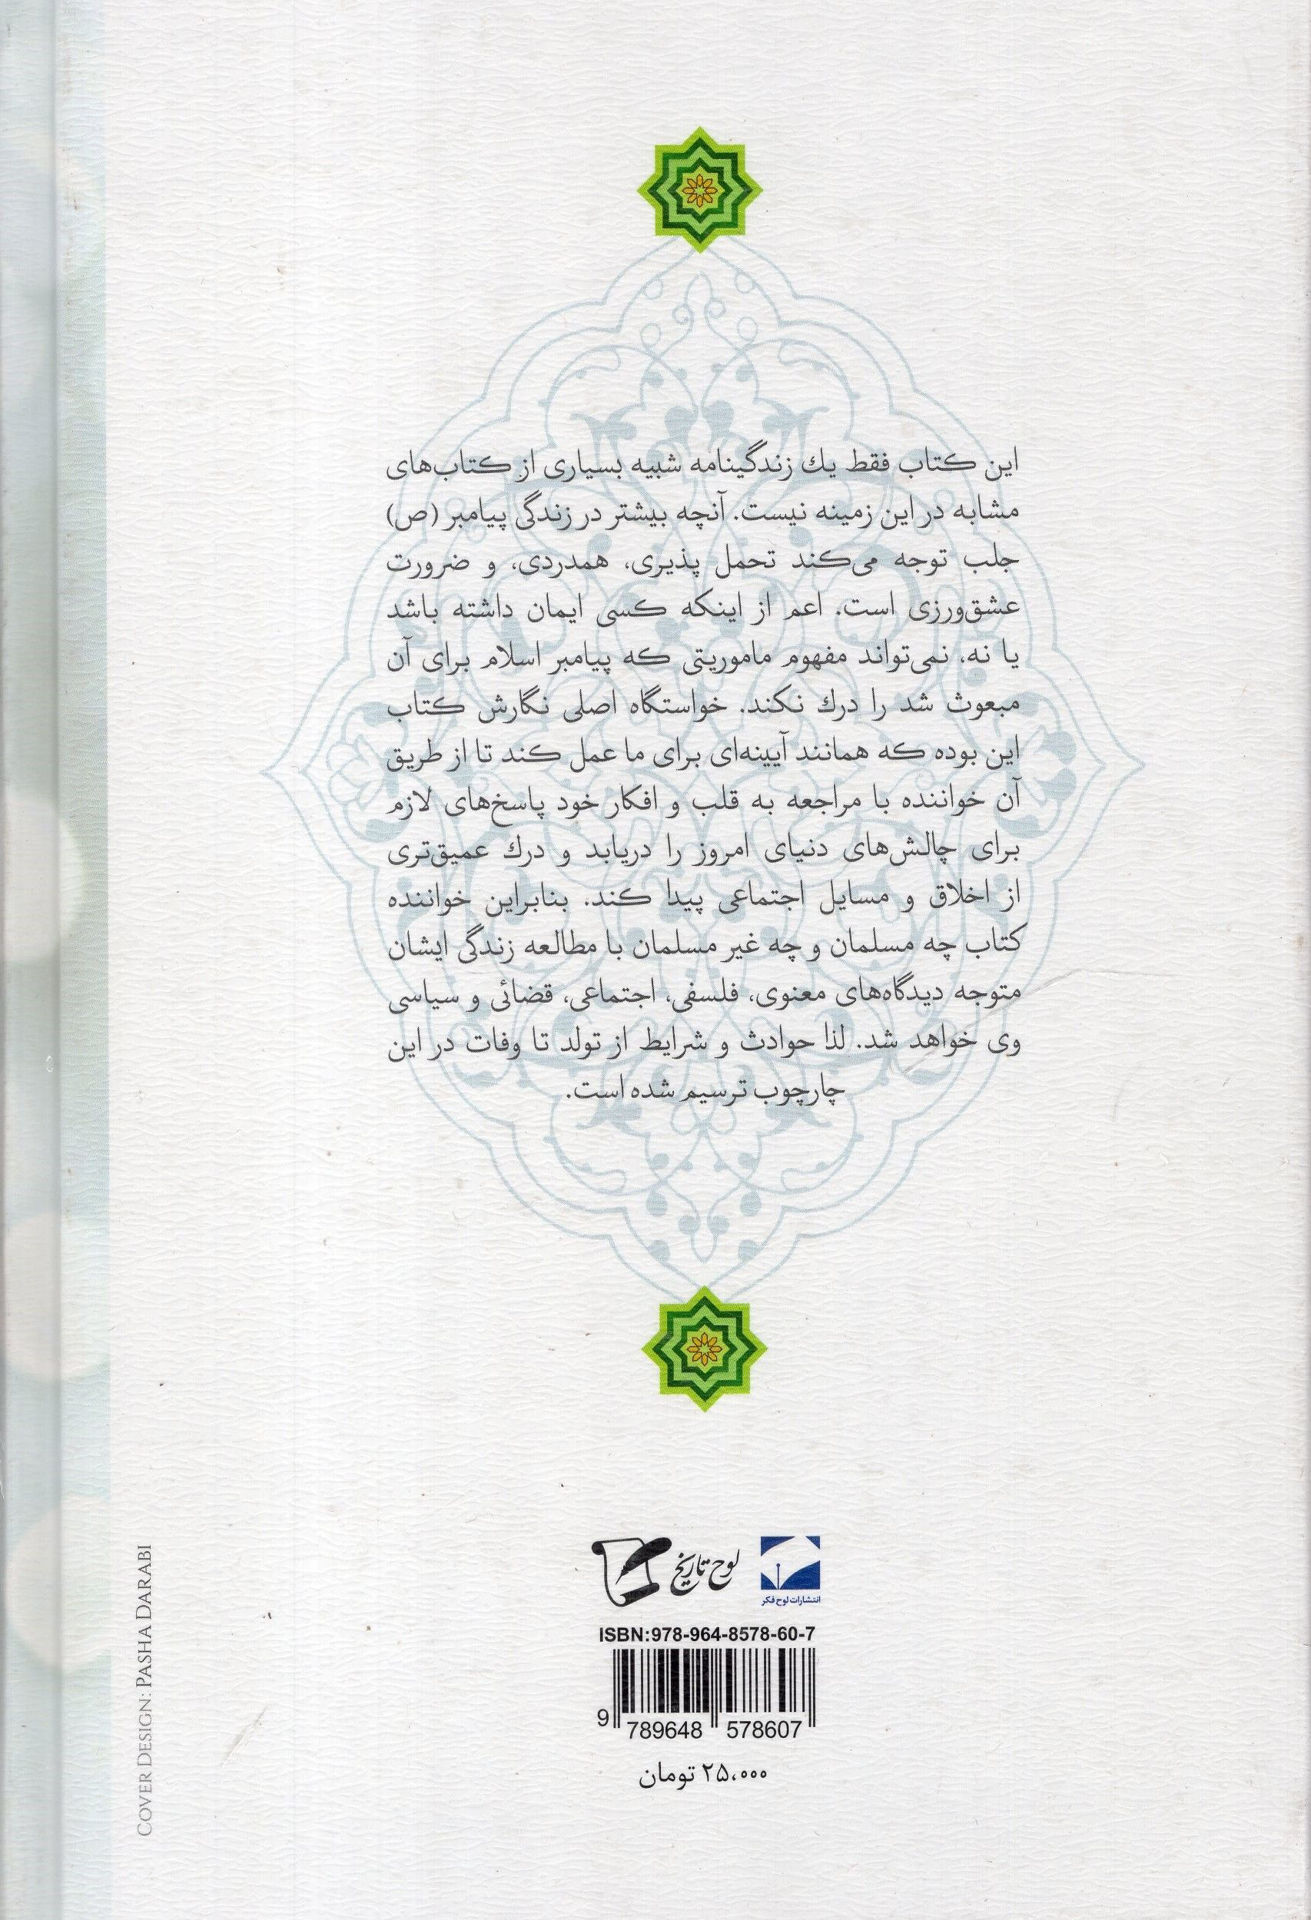 این کتاب فقط یك زندگینامه شبیه بسیاری از کتاب‌های
مشابه در این زمینه نیست. آنچه بیشتر در زندگی پیامبر (ص)
جلب توجه می‌کند تحمل پذیری، همدردی، و ضرورت
عشق‌ورزی است. اعم از اینکه کسی ایمان داشته باشد
یا نه، نمی‌تواند مفهوم ماموریتی که پیامبر اسلام برای آن
مبعوث شد را درك نکند. خواستگاه اصلی نگارش کتاب
این بوده که همانند آیینه‌ای برای ما عمل کند تا از طریق
آن خواننده با مراجعه به قلب و افکار خود پاسخ‌های لازم
برای چالش‌های دنیای امروز را دریابد و درك عمیق‌تری
از اخلاق و مسایل اجتماعی پیدا کند. بنابراین خواننده
کتاب چه مسلمان و چه غیر مسلمان با مطالعه زندگی ایشان
متوجه دیدگاه‌های معنوی، فلسفی، اجتماعی، قضائی و سیاسی
وی خواهد شد. لذا حوادث و شرایط از تولد تا وفات در این
چارچوب ترسیم شده است.
لوح تاریخ
انتشارات لوح فکر
ISBN:978-964-8578-60-7
9 789648 578607
۲۵،۰۰۰ تومان
COVER DESIGN: PASHA DARABI